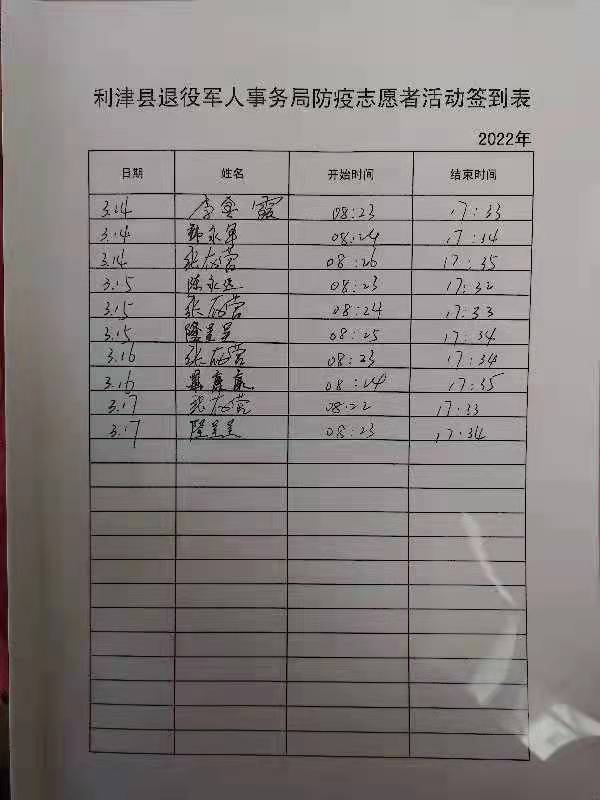 利津县退役军人事务局防疫志愿者活动签到表
2022年
日期 姓名 开始时间 结束时间
3.14 李 霞 08:23 17:33
3.14 郭永军 08:24 17:34
3.14 张在营 08:26 17:35
3.15 陈永远 08:23 17:32
3.15 张在营 08:24 17:33
3.15 隆呈呈 08:25 17:34
3.16 张在营 08:23 17:34
3.16 08:24 17:35
3.17 张在营 08:22 17:33
3.17 隆呈呈 08:23 17:34